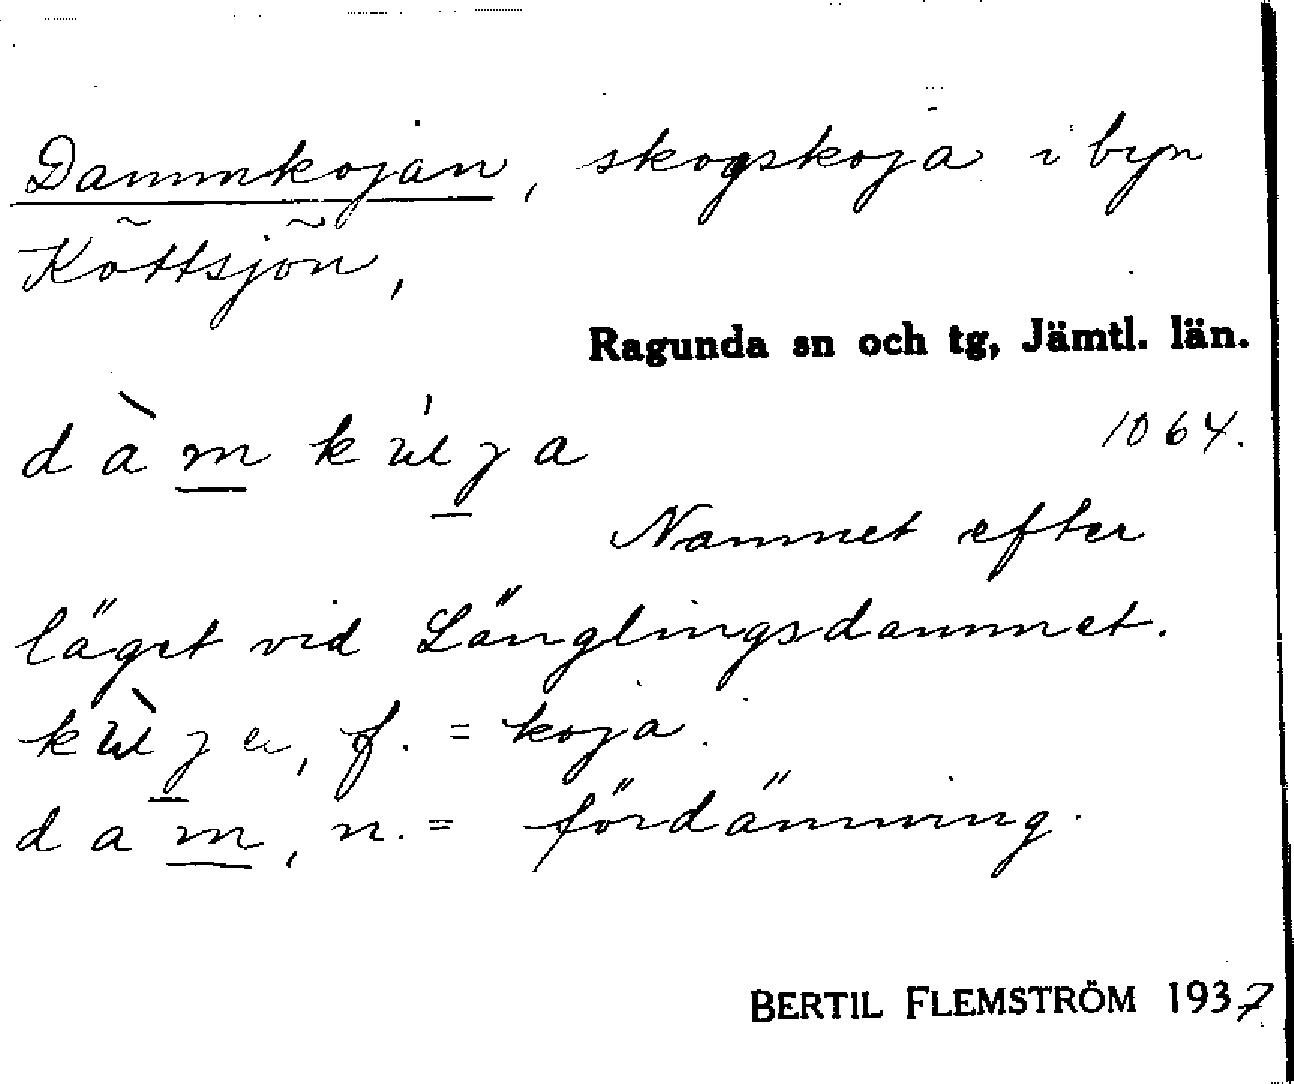 Dammkojan, skogskoja i byn
Köttsjön,
Ragunda sn och tg, Jämtl. län.
1064.
Namnet efter
läget vid Länglingsdammet.
f. = koja.
dam, n. = fördämning.
BERTIL FLEMSTRÖM 1937